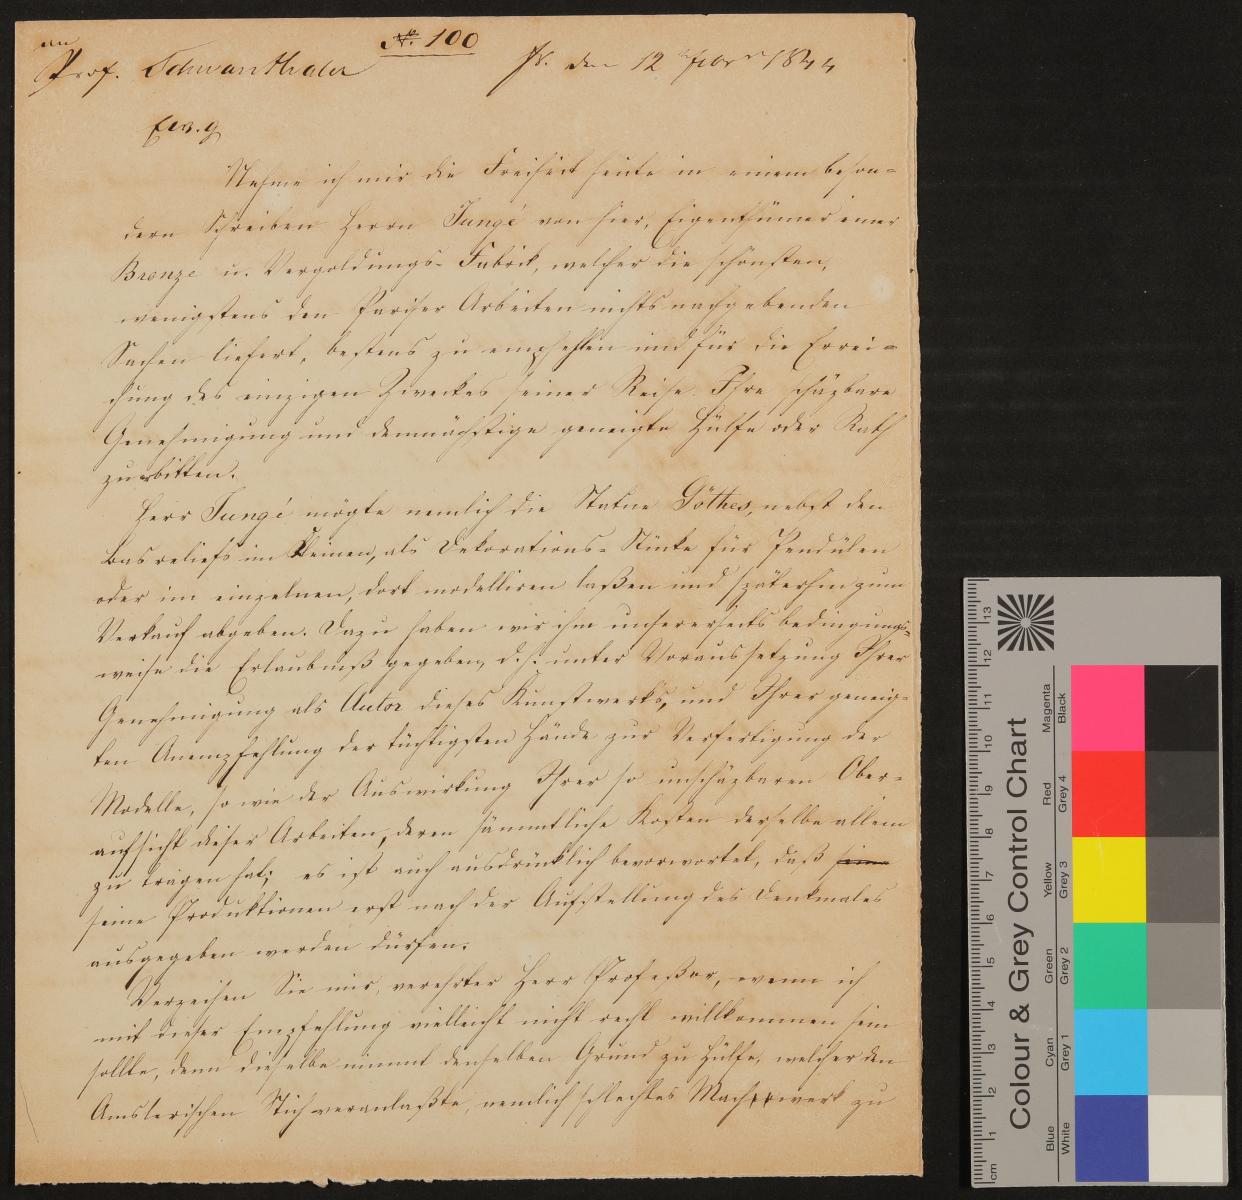 an
No. 100
Prof. Schwanthaler
Fr. den 12 Febr 1844
Ew. g
Nehme ich mir die Freiheit heute in einem beson-
dern Schreiben Herrn Jungé von hier, Eigenthümer einer
Bronze u. Vergoldungs-Fabrik, welcher die schönsten,
wenigstens den Pariser Arbeiten nichts nachgebenden
Sachen liefert, bestens zu empfehlen und für die Errei-
chung des einzigen Zweckes seiner Reise Ihre schäzbare
Genehmigung und demnächstige geneigte Hülfe oder Rath
zu erbitten.
Herr Jungé mögte nemlich die Statue Göthes, nebst den
basreliefs im Kleinen, als Dekorations-Stücke für Pendülen
oder im einzelnen, dort modelliren laßen und späterhin zum
Verkauf abgeben. Dazu haben wir ihm unsererseits bedingungs-
weise die Erlaubniß gegeben, d. h. unter Voraussetzung Ihrer
Genehmigung als Autor dieses Kunstwerks, und Ihrer geneig-
ten Anempfehlung der tüchtigsten Hände zur Verfertigung der
Modelle, so wie der Auswirkung Ihrer so unschäzbaren Ober-
aufsicht dieser Arbeiten, deren sämmtliche Kosten derselbe allein
zu tragen hat; es ist auch ausdrücklich bevorwortet, daß
seine Produktionen erst nach der Aufstellung des Denkmales
ausgegeben werden dürfen.
Verzeihen Sie mir, verehrter Herr Profeßor, wenn ich
mit dieser Empfehlung vielleicht nicht recht willkommen sein
sollte, denn dieselbe nimmt denselben Grund zu Hülfe, welcher den
Amslerischen Stich veranlaßte, nemlich schlechtes Machwerk zu
Colour & Grey Control Chart
Blue Cyan Green Yellow Red Magenta
White Grey 1 Grey 2 Grey 3 Grey 4 Black
cm 1 2 3 4 5 6 7 8 9 10 11 12 13